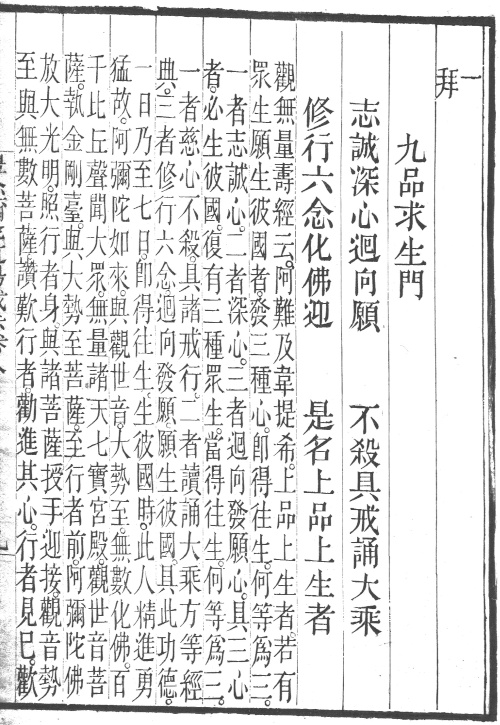 一拜
九品求生門
志誠深心迴向願　不殺具戒誦大乘
修行六念化佛迎　是名上品上生者
觀無量壽經云。阿難及韋提希。上品上生者。若有
眾生願生彼國者。發三種心。卽得往生。何等爲三。
一者志誠心。二者深心。三者迴向發願心。具三心
者。必生彼國。復有三種眾生。當得往生。何等爲三。
一者慈心不殺。具諸戒行。二者讀誦大乘方等經
典。三者修行六念。迴向發願。願生彼國。具此功德。
一日乃至七日。卽得往生。生彼國時。此人精進勇
猛故。阿彌陀如來。與觀世音。大勢至。無數化佛。百
千比丘。聲聞大眾。無量諸天。七寶宮殿。觀世音菩
薩。執金剛臺。與大勢至菩薩。至行者前。阿彌陀佛
放大光明。照行者身。與諸菩薩授手迎接。觀音勢
至與無數菩薩讚歎行者。勸進其心。行者見已。歡